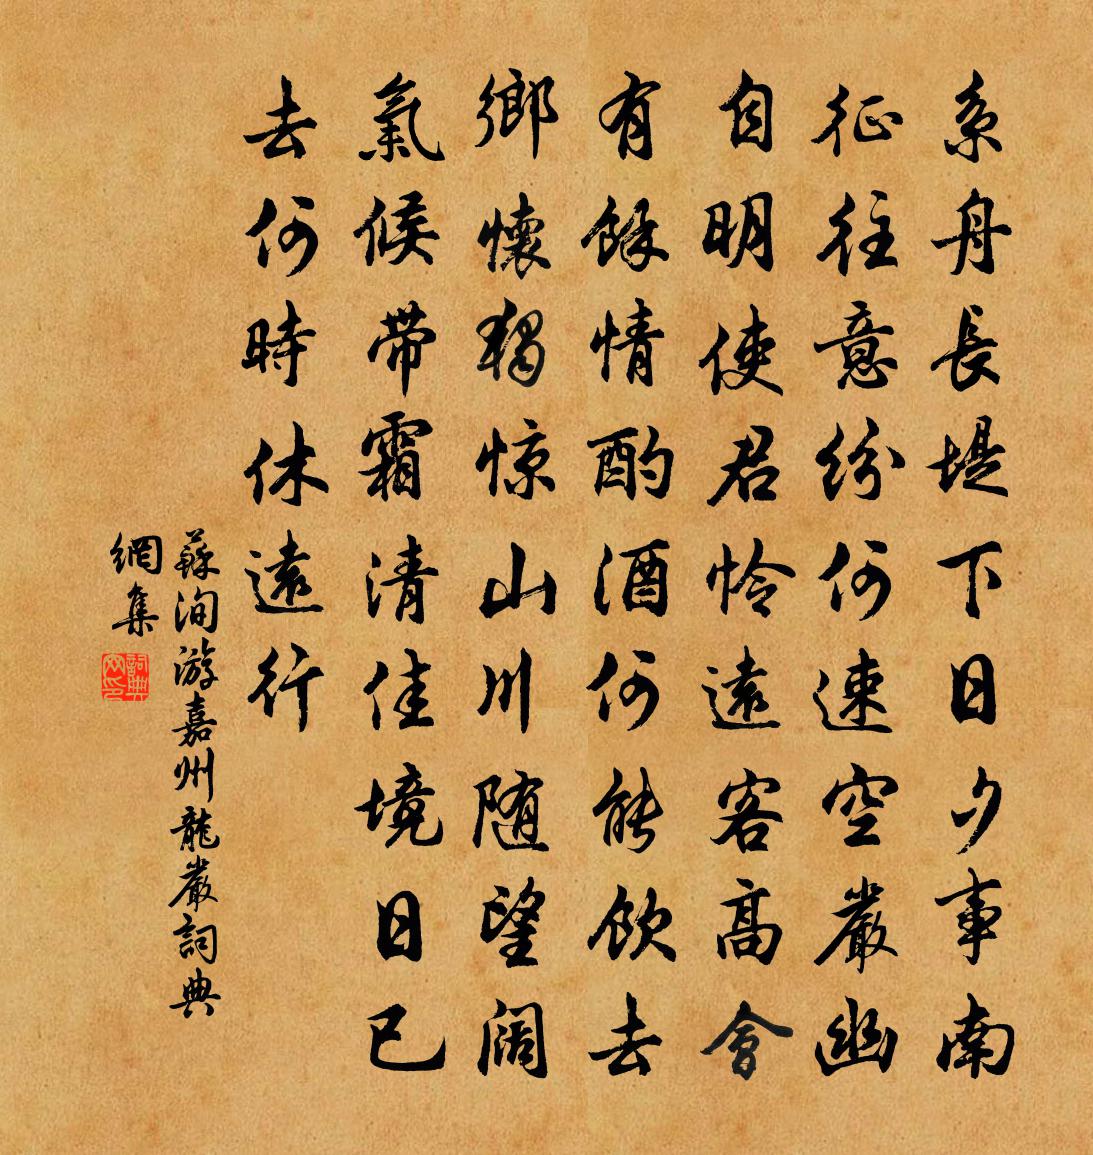 系舟長堤下日夕事南
征往意紛何速空嚴幽
自明使君怜遠客高會
有餘情酌酒何能飲去
鄉懷獨惊山川隨望闊
氣候帶霜清佳境日已
去何時休遠行
蘇洵游嘉州龍嚴詞典
網集
詞典
网印